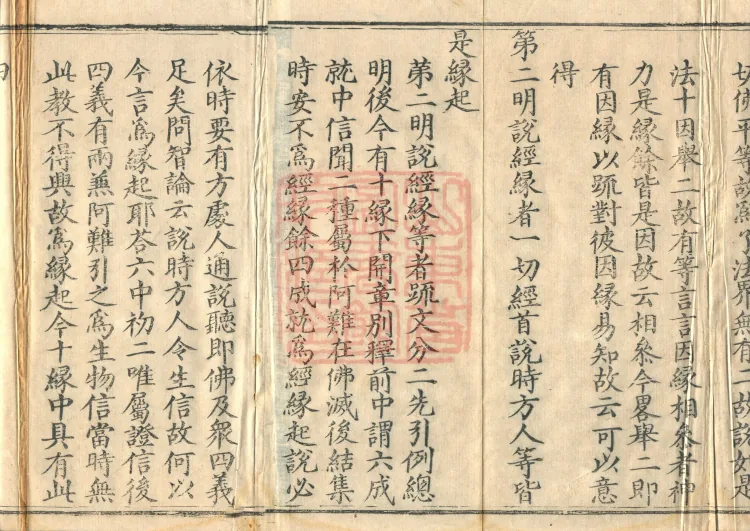 切佛平等故爲字法界無有二故說如是
法十因舉二故有等言言因縁相叅者神
力是縁餘皆是因故云相叅今畧舉二即
有因縁以䟽對彼因縁易知故云可以意
得
第二明說經縁者一切經首說時方人等皆
是縁起
第二明說經縁等者䟽文分二先引例總
明後今有十縁下開章別釋前中謂六成
就中信聞二種屬於阿難在佛滅後結集
時安不爲經縁餘四成就爲經縁起說必
依時要有方處人通說聽即佛及衆四義
足矣問智論云說時方人令生信故何以
今言爲縁起耶荅六中初二唯屬證信後
四義有兩兼阿難引之爲生物信當時無
此教不得興故爲縁起今十縁中具有此